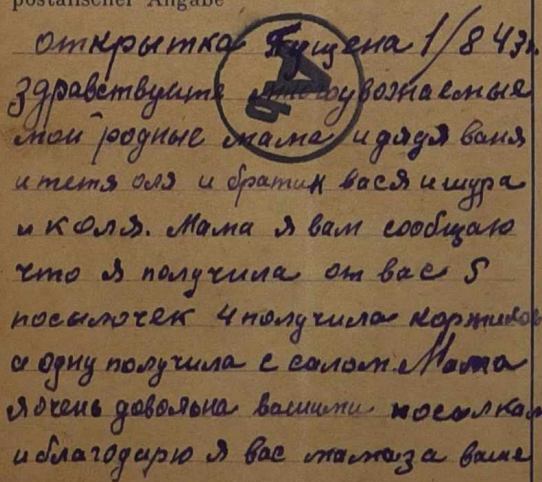 postalischer Angabe
открытка Пущена 1/8 43г.
здравствуите многоувожаемые
мои родные мама и дядя ваня
и тетя оля и братик вася и шура
и коля. Мама я вам сообщаю
что я получила от вас 5
посылочек 4 получила коржиков
а одну получила с салом. Мама
я очень довольна вашими посылкам
и благодарю я вас мама за ваше